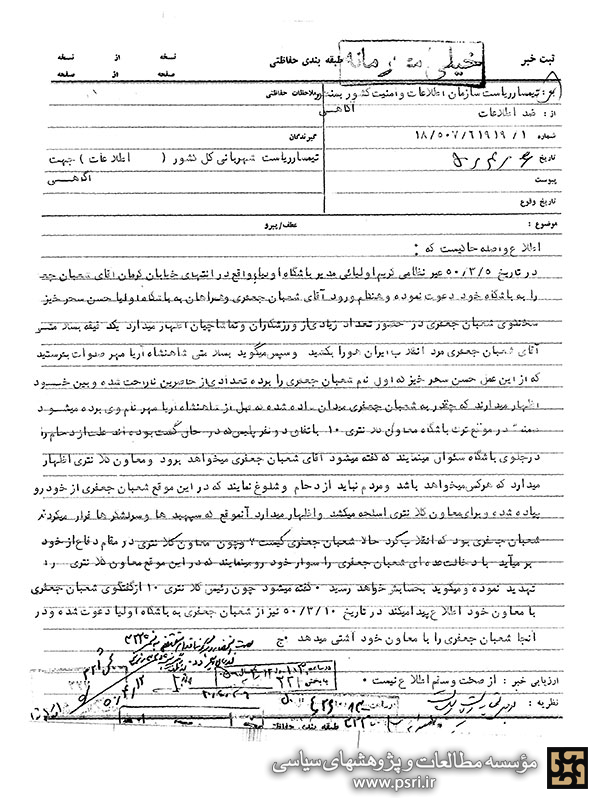 ثبت خبر
خیلی محرمانه
طبقه بندی حفاظتی
نسخه از نسخه
صفحه از صفحه
به: تیمسار ریاست سازمان اطلاعات و امنیت کشور بمنظور آگاهی
ملاحظات حفاظتی
از: ضد اطلاعات
شماره ۱۸/۵۰۷/۶۱۹۱۹/۱
گیرندگان
تاریخ
تیمسار ریاست شهربانی کل کشور ( اطلاعات ) جهت آگاهی
پیوست
تاریخ وقوع
موضوع : عطف/پیرو
اطلاع واصله حاکیست که :
در تاریخ ۵۰/۳/۵ غیر نظامی کریم اولیائی مدیر باشگاه اولیا واقع در انتهای خیابان کرمان آقای شعبان جعفری
را به باشگاه خود دعوت نموده و هنگام ورود آقای شعبان جعفری و همراهان به باشگاه اولیا حسن سحر خیز
سخنگوی شعبان جعفری در حضور تعداد زیادی از ورزشکاران و تماشاچیان اظهار میدارد یک نیمه بسلامتی
آقای شعبان جعفری مرد انقلاب ایران هورا بکشید وسپس میگوید بسلامتی شاهنشاه آریا مهر صلوات بفرستید
که از این عمل حسن سحر خیز که اول نام شعبان جعفری را برده تعدادی از حاضرین ناراحت شده و بین خود
اظهار میدارند که چقدر به شعبان جعفری میدان داده شده که قبل از شاهنشاه آریا مهر نام وی برده میشود
ضمنا در موقع ترک باشگاه معاون کلانتری ۱۰ باتفاق دو نفر پلیس که در حال گشت بوده اند علت ازدحام را
در جلوی باشگاه سئوال مینمایند که گفته میشود آقای شعبان جعفری میخواهد برود ومعاون کلانتری اظهار
میدارد که هرکس میخواهد باشد ومردم نباید ازدحام وشلوغ نمایند که در این موقع شعبان جعفری از خودرو
پیاده شده و برای معاون کلانتری اسلحه میکشد واظهار میدارد آنموقع که سپهبد ها وسرلشکر ها فرار میکردند
شعبان جعفری بود که انقلاب کرد حالا شعبان جعفری کیست؟ وچون معاون کلانتری در مقام دفاع از خود
بر میآید با دخالت عده ای شعبان جعفری را سوار خودرو مینمایند که در این موقع معاون کلانتری را
تهدید نموده ومیگوید بحسابش خواهد رسید ۰ گفته میشود چون رئیس کلانتری ۱۰ از گفتگوی شعبان جعفری
با معاون خود اطلاع پیدا میکند در تاریخ ۵۰/۳/۱۰ نیز از شعبان جعفری به باشگاه اولیا دعوت شده ودر
آنجا شعبان جعفری را با معاون خود آشتی میدهد ۰ ج
ارزیابی خبر : از صحت وسقم اطلاعی نیست ۰
نظریه :
طبقه بندی حفاظتی
مؤسسه مطالعات و پژوهشهای سیاسی
www.psri.ir